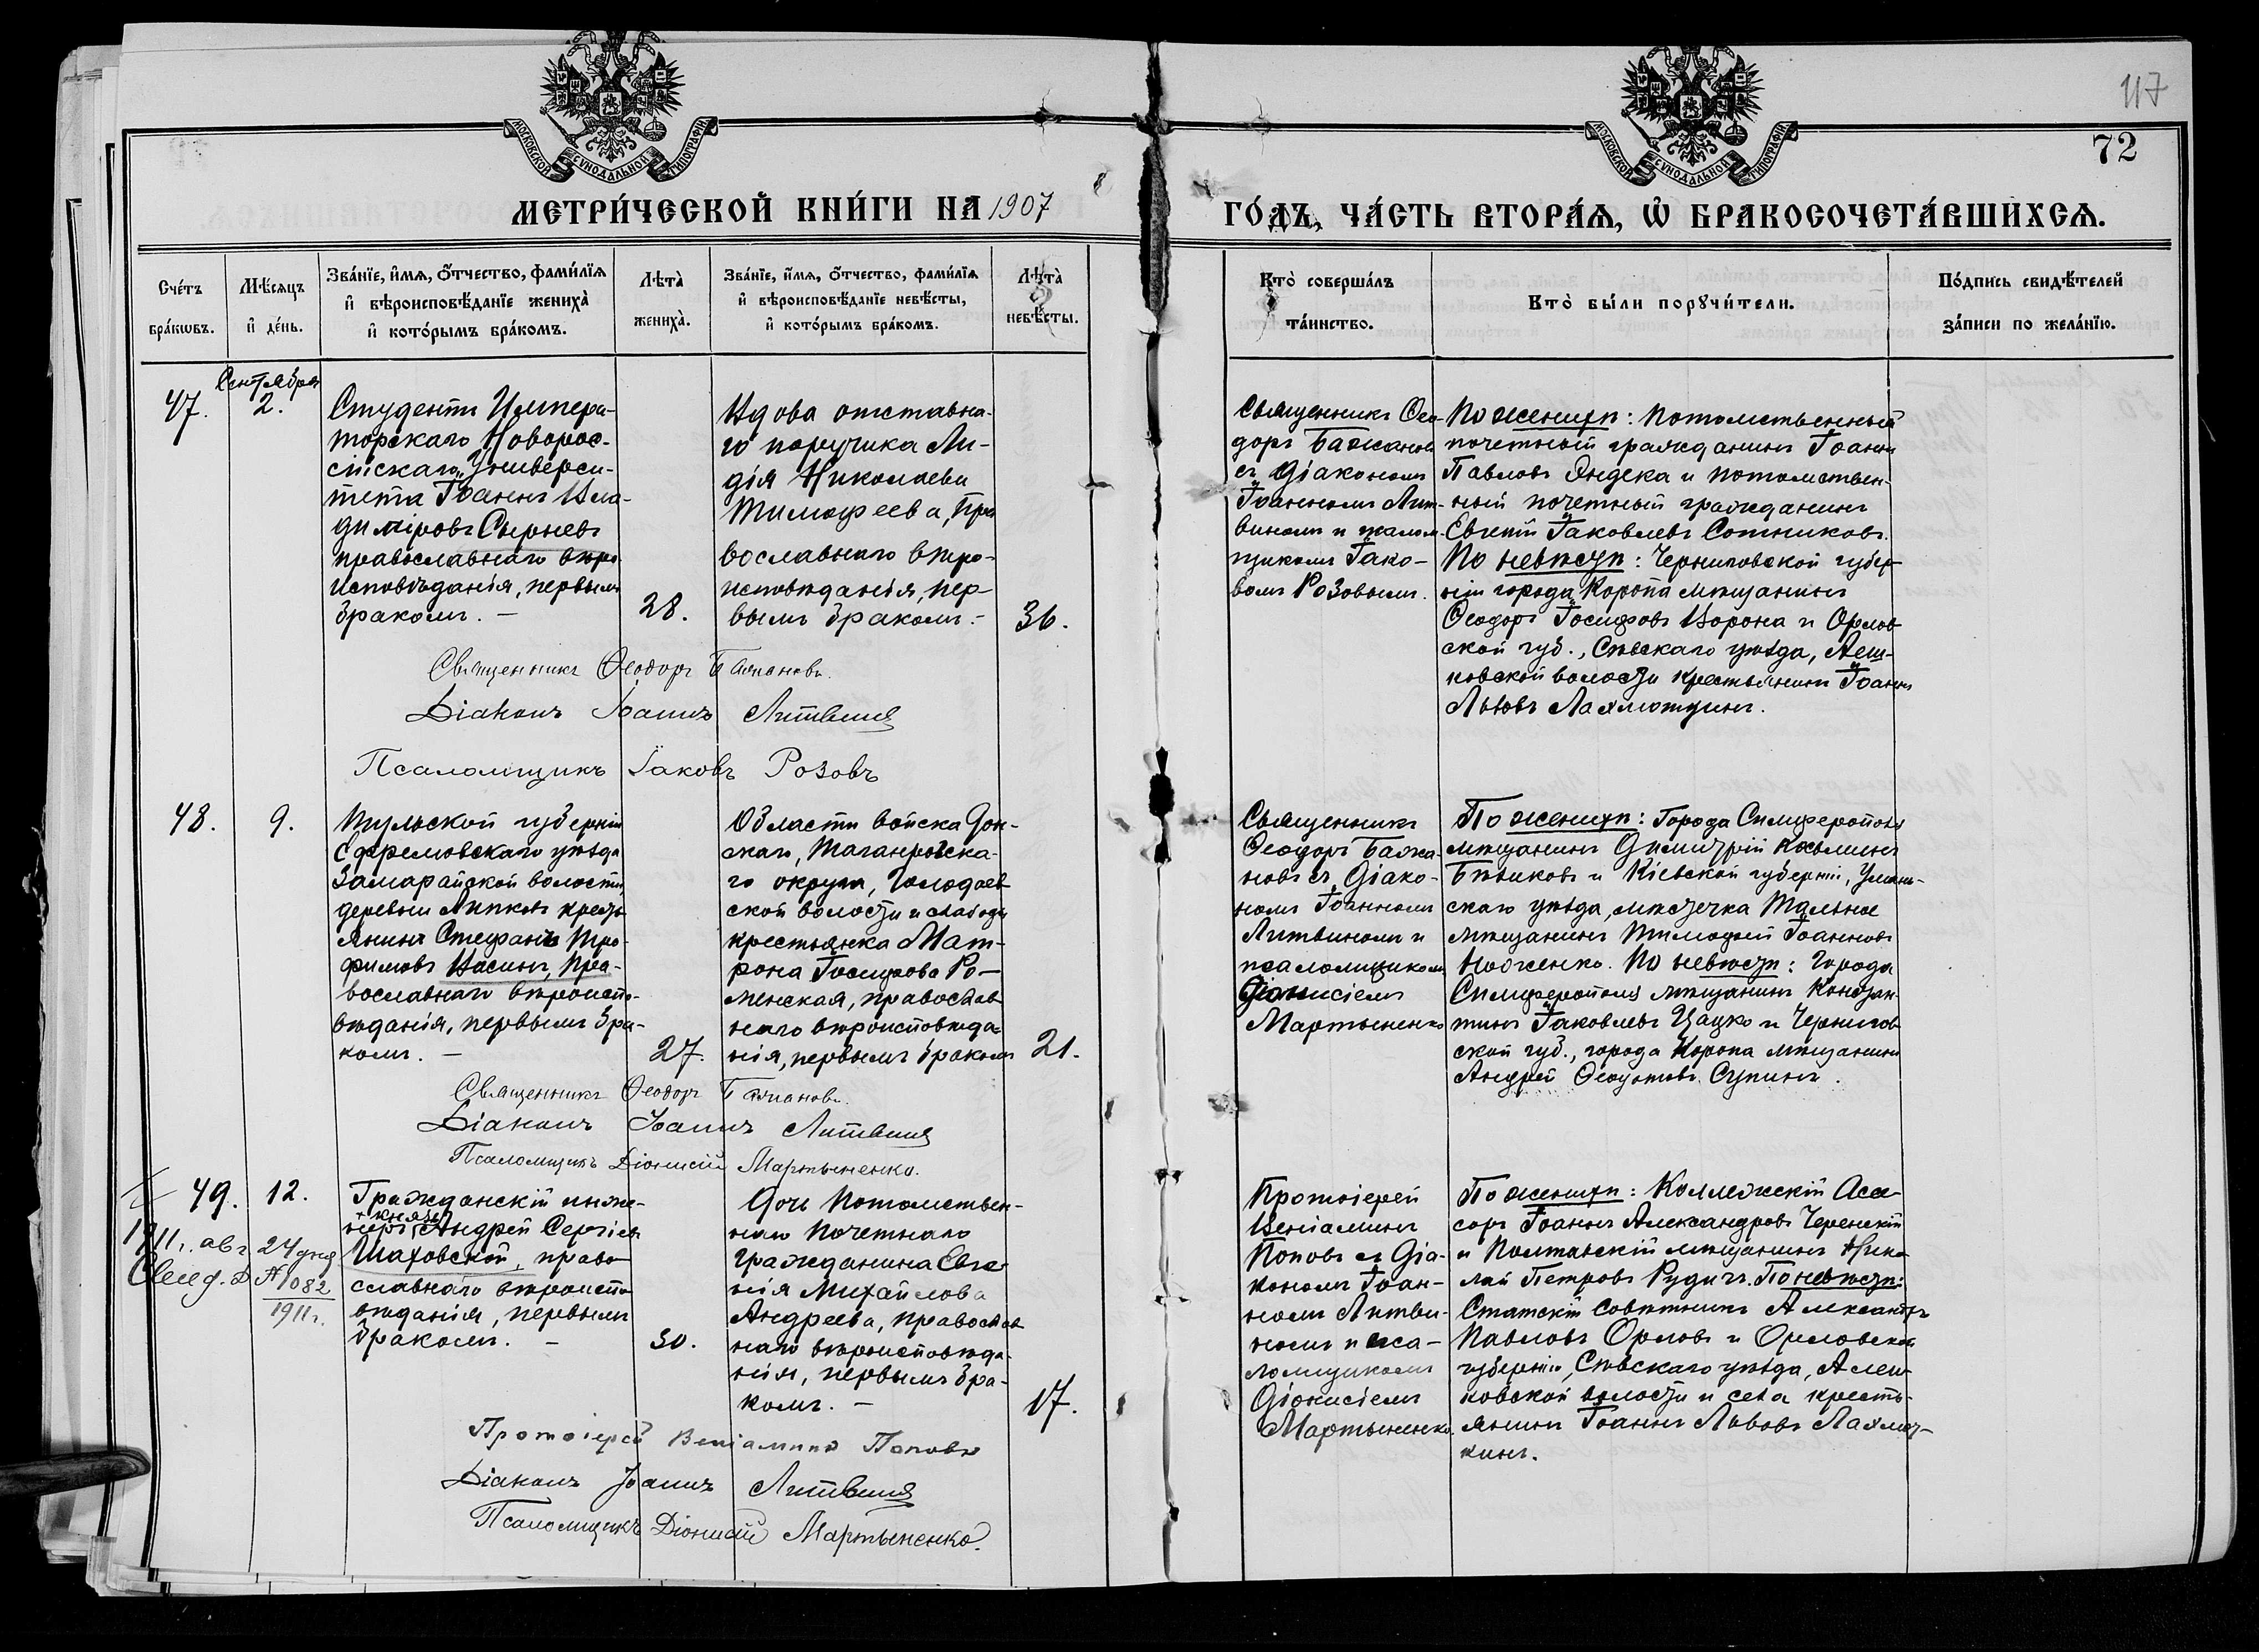 117
72
МОСКОВСКОЙ СѴНОДАЛЬНОЙ ТИПОГРАФІИ
МОСКОВСКОЙ СѴНОДАЛЬНОЙ ТИПОГРАФІИ
МЕТРИ́ЧЕСКОЙ КНИ́ГИ НА 1907
ГО́ДЪ, ЧА́СТЬ ВТОРА́Я, Ѡ҆ БРАКОСОЧЕТА́ВШИХСЯ.
Сче́тъ
бра́кѡвъ.
Мѣ́сяцъ
и҆ де́нь.
Зва́нїе, и҆́мѧ, ѻ҆́тчество, фами́лїѧ
и҆ вѣроисповѣ́данїе жениха̀
и҆ кото́рымъ бра́комъ.
Лѣта̀
жениха̀.
Зва́нїе, и҆́мѧ, ѻ҆́тчество, фами́лїѧ
и҆ вѣроисповѣ́данїе невѣ́сты,
и҆ кото́рымъ бра́комъ.
Лѣта̀
невѣ́сты.
Кто̀ соверша́лъ
та́инство.
Кто̀ бы́ли порꙋчи́тели.
По́дпись свидѣ́телей
за́писи по жела́нїю.
47.
Сентября
2.
Студентъ Импера-
торскаго Новорос-
сійскаго Универси-
тета Іоаннъ Вла-
диміровъ Сырневъ
православнаго вѣро
исповѣданія, первымъ
бракомъ. –
28.
Вдова отставна-
го поручика Ли-
дія Николаева
Тимофеева, Пра
вославнаго вѣро-
исповѣданія, пер-
вымъ бракомъ. –
36.
Священникъ Ѳео-
доръ Бажановъ
съ Діакономъ
Іоанномъ Лит-
виномъ и псалом
щикомъ Іако-
вомъ Розовымъ.
По женихѣ: Потомственный
почетный гражданинъ Іоаннъ
Павловъ Яндека и потомствен-
ный почетный гражданинъ
Евгеній Іаковлевъ Сотниковъ.
По невѣстѣ: Черниговской губер-
ніи города Коропа мѣщанинъ
Ѳеодоръ Іосифовъ Ворона и Орлов
ской губ., Сѣвскаго уѣзда, Леш-
ковской волости крестьянинъ Іоаннъ
Львовъ Лахмоткинъ.
Священникъ Ѳеодоръ Бажановъ.
Діаконъ Іоаннъ Литвинъ
Псаломщикъ Іаковъ Розовъ
48.
9.
Тульской губерніи
Ефремовскаго уѣзда
Замарайской волости,
деревни Липковъ кресть
янинъ Стефанъ Тро-
фимовъ Васинъ, пра-
вославнаго вѣроиспо-
вѣданія, первымъ бра-
комъ. –
27.
Области войска Дон-
скаго, Таганрогска-
го округа, Голодаев
ской волости и слободы
крестьянка Мат-
рона Іосифова Ро-
менская, православ
наго вѣроисповѣда-
нія, первымъ бракомъ
21.
Священникъ
Ѳеодоръ Бажа-
новъ съ Діако-
номъ Іоанномъ
Литвиномъ и
псаломщикомъ
Діонисіемъ
Мартыненко
По женихѣ: Города Симферополя
мѣщанинъ Димитрій Косьминъ
Бѣликовъ и Кіевской губерніи, Уман-
скаго уѣзда, мѣстечка Тальное
мѣщанинъ Тимофей Іоанновъ
Ноженко. По невѣстѣ: Города
Симферополя мѣщанинъ Констан-
тинъ Іаковлевъ Цацко и Чернигов
ской губ., города Коропа мѣщанинъ
Андрей Ѳеодотовъ Супинъ.
Священникъ Ѳеодоръ Бажановъ.
Діаконъ Іоаннъ Литвинъ
Псаломщикъ Діонисій Мартыненко.
49.
12.
1911 г. авг 24 дня
Свид. № 1082
1911 г.
Гражданскій инже-
князь
неръ Андрей Сергіев
Шаховской, право
славнаго вѣроиспо
вѣданія, первымъ
бракомъ. –
30.
Дочь Потомствен-
наго Почетнаго
гражданина Евге
нія Михайлова
Андреева, православ
наго вѣроисповѣда-
нія, первымъ бра-
комъ. –
17.
Протоіерей
Веніаминъ
Поповъ съ Діа-
кономъ Іоан-
номъ Литви-
номъ и пса-
ломщикомъ
Діонисіемъ
Мартыненко.
По женихѣ: Коллежскій Асе-
соръ Іоаннъ Александровъ Черенскій
и Полтавскій мѣщанинъ Нико
лай Петровъ Рудичъ. По невѣстѣ:
Статскій Совѣтникъ Александръ
Павловъ Орловъ и Орловской
губерніи, Сѣвскаго уѣзда, Леш
ковской волости и села кресть-
янинъ Іоаннъ Львовъ Лахмот-
кинъ.
Протоіерей Веніаминъ Поповъ
Діаконъ Іоаннъ Литвинъ
Псаломщикъ Діонисій Мартыненко.